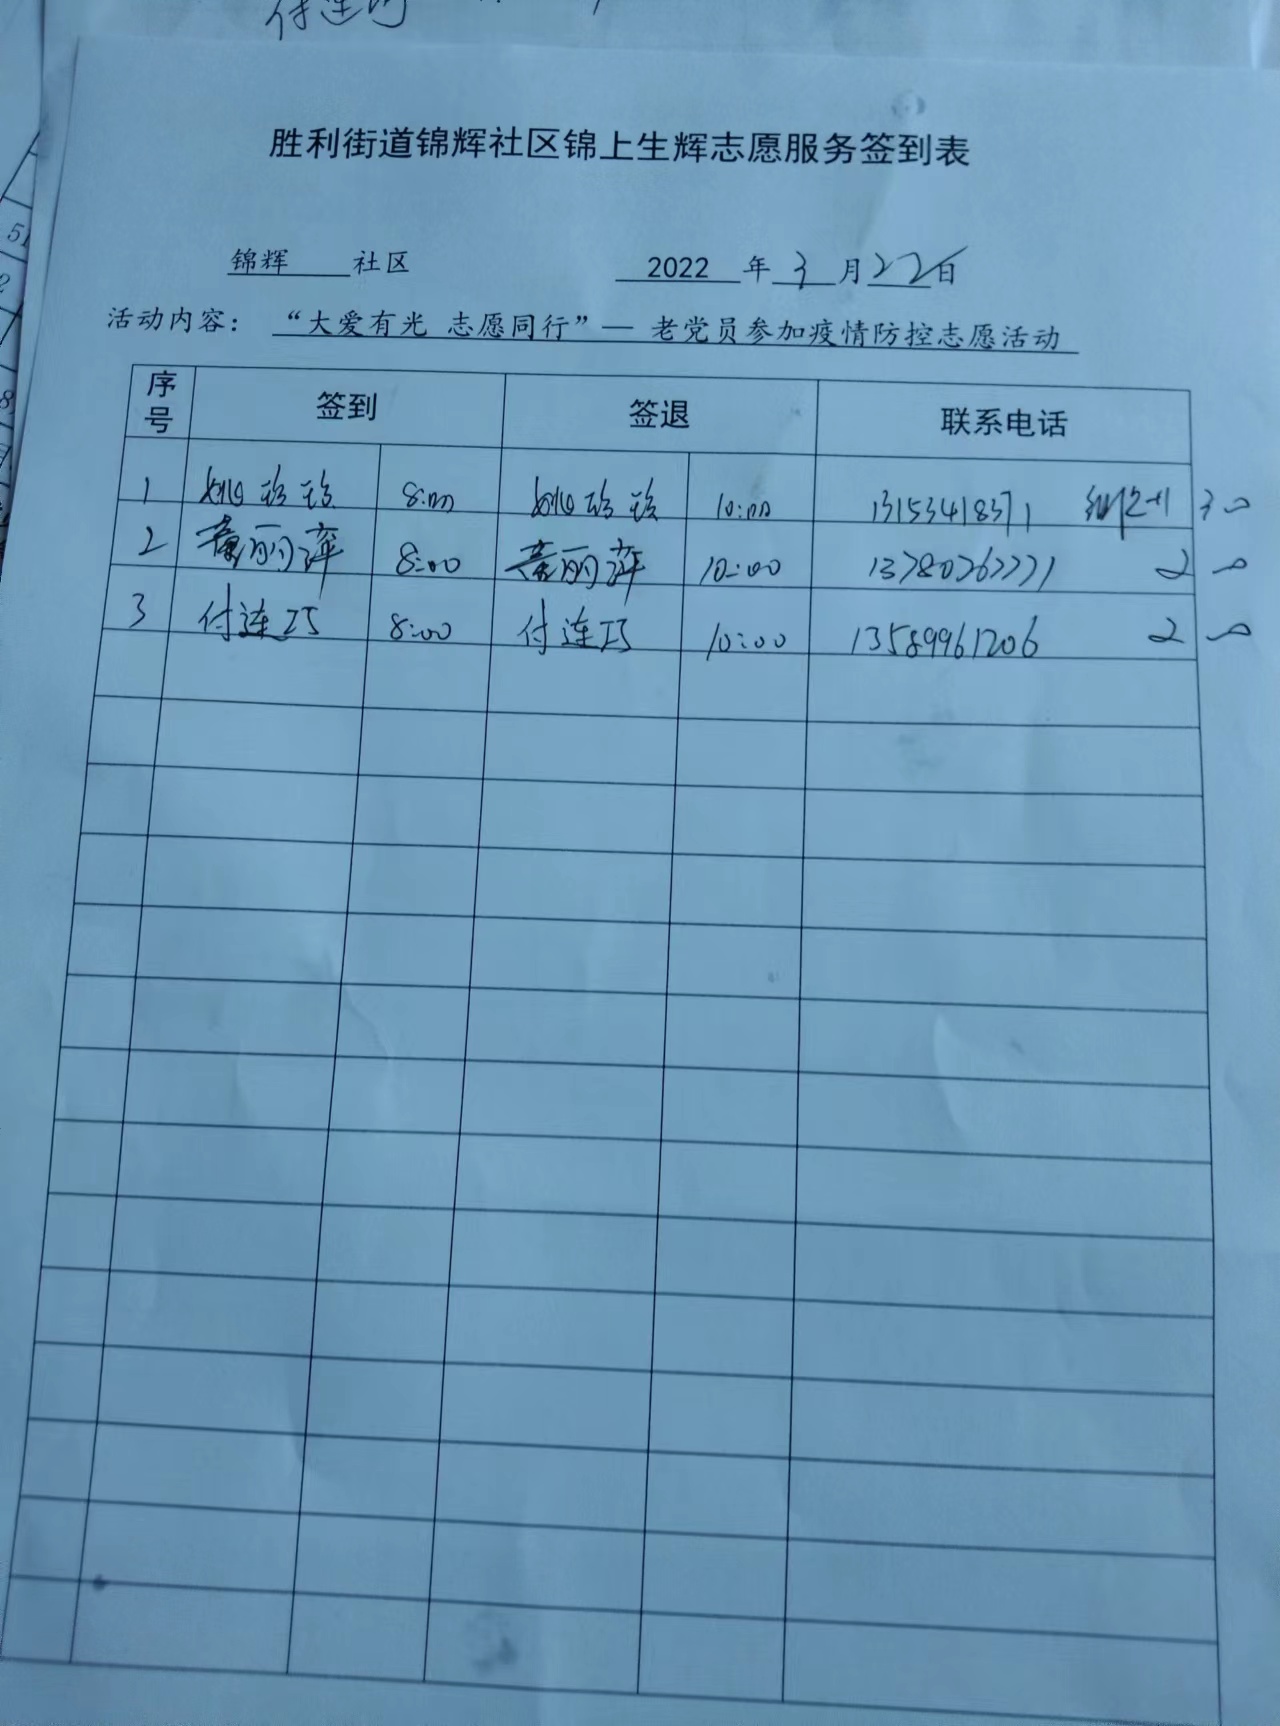 付连巧
胜利街道锦辉社区锦上生辉志愿服务签到表
锦辉 社区 2022 年 3 月 22 日
活动内容： “大爱有光 志愿同行”— 老党员参加疫情防控志愿活动
序号 签到 签退 联系电话
1 姚珍珍 8:00 姚珍珍 10:00 13153418371 30
2 董丽萍 8:00 董丽萍 10:00 13780762271 20
3 付连巧 8:00 付连巧 10:00 13589961206 20